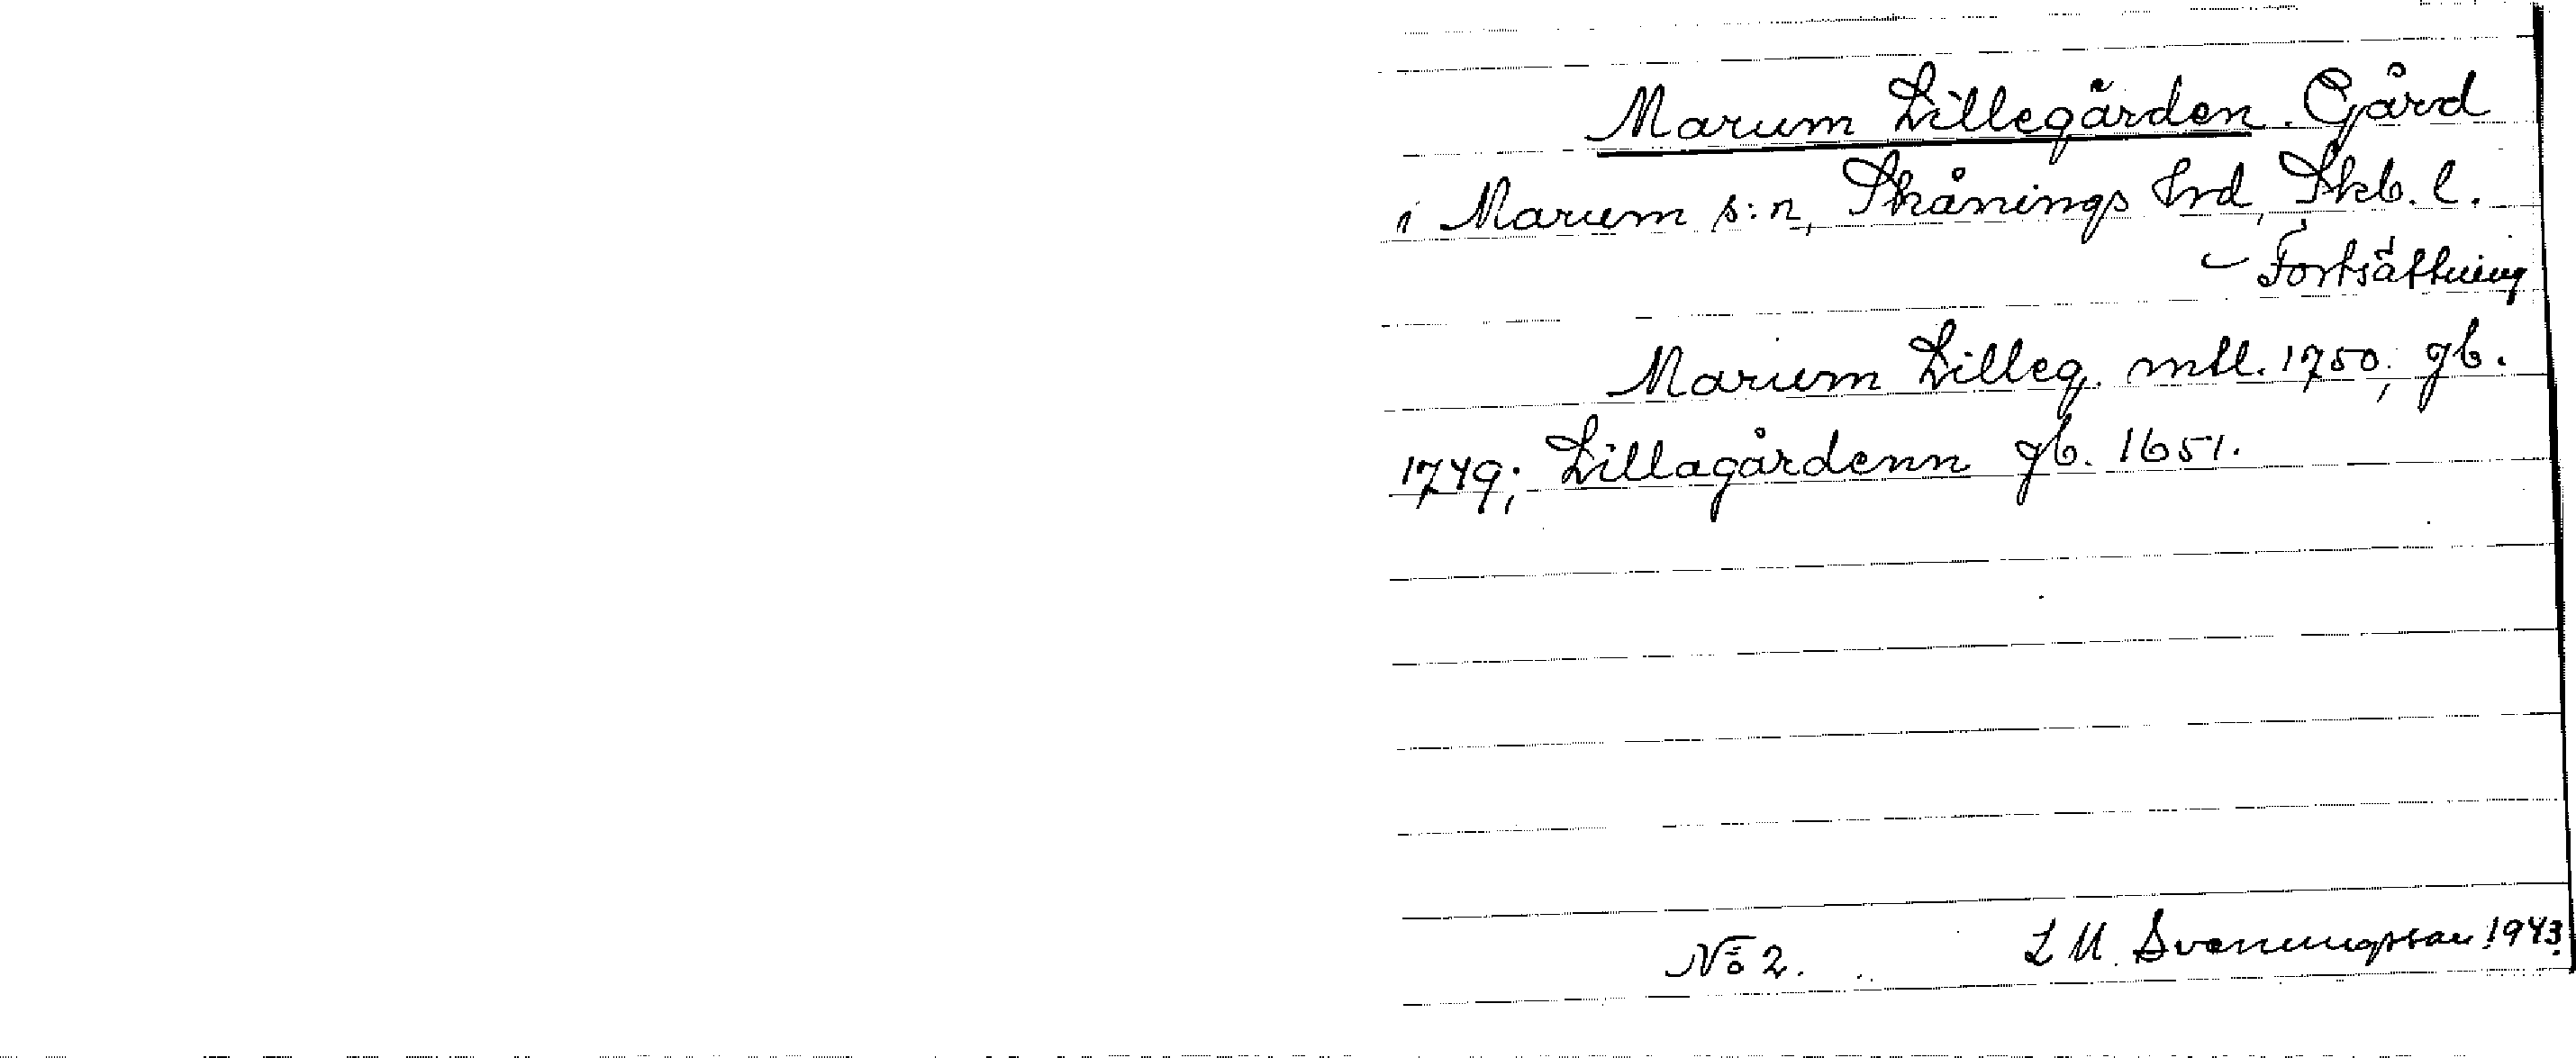 Marum Lillegården. Gård
i Marum s:n, Skånings hrd, Skb. l.
– Fortsättning
Marum Lilleg. mtl. 1750; jb.
1749; Lillagårdenn jb. 1651.
No 2. L M. Svenungsson 1943.